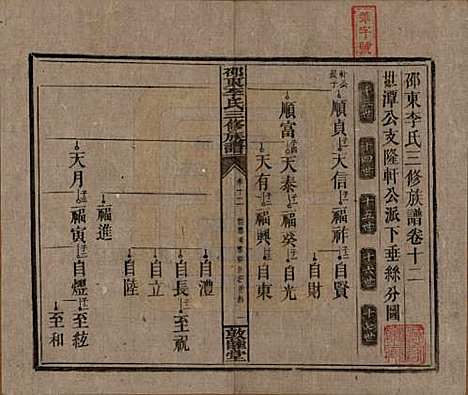 華字號
邵東李氏三修族譜卷十二
世潭公支隆軒公派下垂絲分圖
十三世
十四世
十五世
十六世
十七世
軒公
順貞
天信
福祥
自賢
自財
順富
天泰
福癸
自光
天有
福興
自東
邵東李氏三修族譜
卷十二
敦睦堂
自澧
自長
至祝
自立
福進
自陸
天月
福寅
自燈
至紘
至和